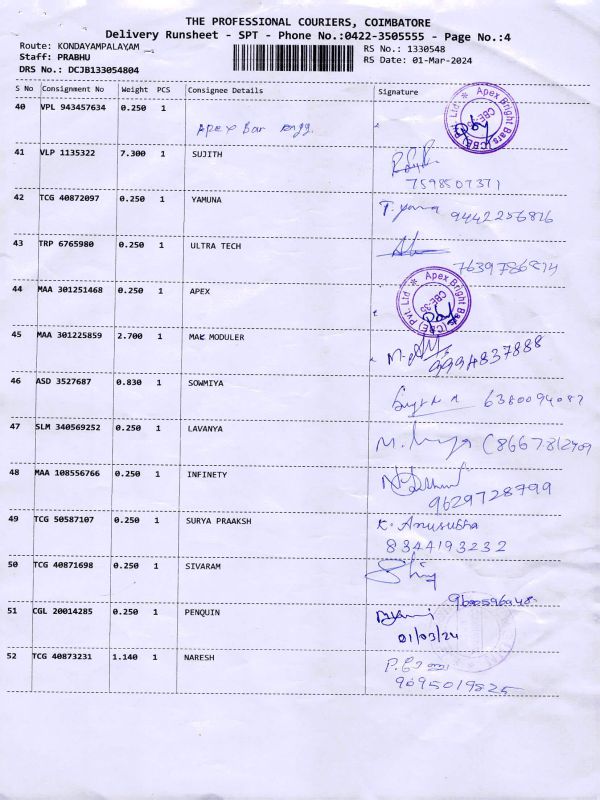 THE PROFESSIONAL COURIERS, COIMBATORE
Delivery Runsheet - SPT - Phone No.:0422-3505555 - Page No.:4
Route: KONDAYAMPALAYAM RS No.: 1330548
Staff: PRABHU RS Date: 01-Mar-2024
DRS No.: DCJB133054804
S No Consignment No Weight PCS Consignee Details Signature
40 VPL 943457634 0.250 1
Apex Bar Engg.
Apex Bright Bars (CBE) Pvt. Ltd. * CBE-35
41 VLP 1135322 7.300 1 SUJITH
7598507371
42 TCG 40872097 0.250 1 YAMUNA
9442256816
43 TRP 6765980 0.250 1 ULTRA TECH
44 MAA 301251468 0.250 1 APEX
Apex Bright Bars (CBE) Pvt. Ltd. * CBE-35
45 MAA 301225859 2.700 1 MAK MODULER
9994837888
46 ASD 3527687 0.830 1 SOWMIYA
47 SLM 340569252 0.250 1 LAVANYA
48 MAA 108556766 0.250 1 INFINETY
9629728799
49 TCG 50587107 0.250 1 SURYA PRAAKSH K. Anusubha
8344193232
50 TCG 40871698 0.250 1 SIVARAM
51 CGL 20014285 0.250 1 PENQUIN
01/03/24
52 TCG 40873231 1.140 1 NARESH
9095019825